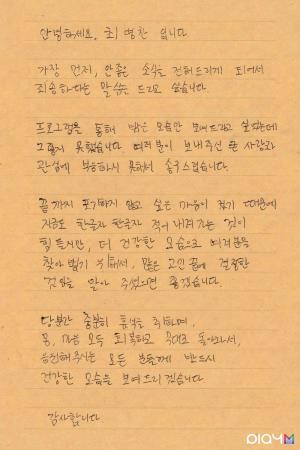 안녕하세요. 최병찬 입니다
가장 먼저, 안좋은 소식을 전해드리게 되어서
죄송하다는 말씀을 드리고 싶습니다
프로그램을 통해 밝은 모습만 보여드리고 싶었는데
그렇지 못했습니다 여러분이 보내주신 큰 사랑과
관심에 부응하지 못해서 송구스럽습니다.
끝까지 포기하지 않고 싶은 마음이 컸기 때문에
지금도 한글자 한글자 적어 내려가는 것이
힘들지만, 더 건강한 모습으로 여러분을
찾아뵙기 위해서, 많은 고민 끝에 결정한
것임을 알아 주셨으면 좋겠습니다.
당분간 충분히 휴식을 취하며,
몸, 마음 모두 회복하고 돌아와서,
응원해주시는 모든 분들께 반드시
건강한 모습을 보여드리겠습니다
감사합니다
PlayM